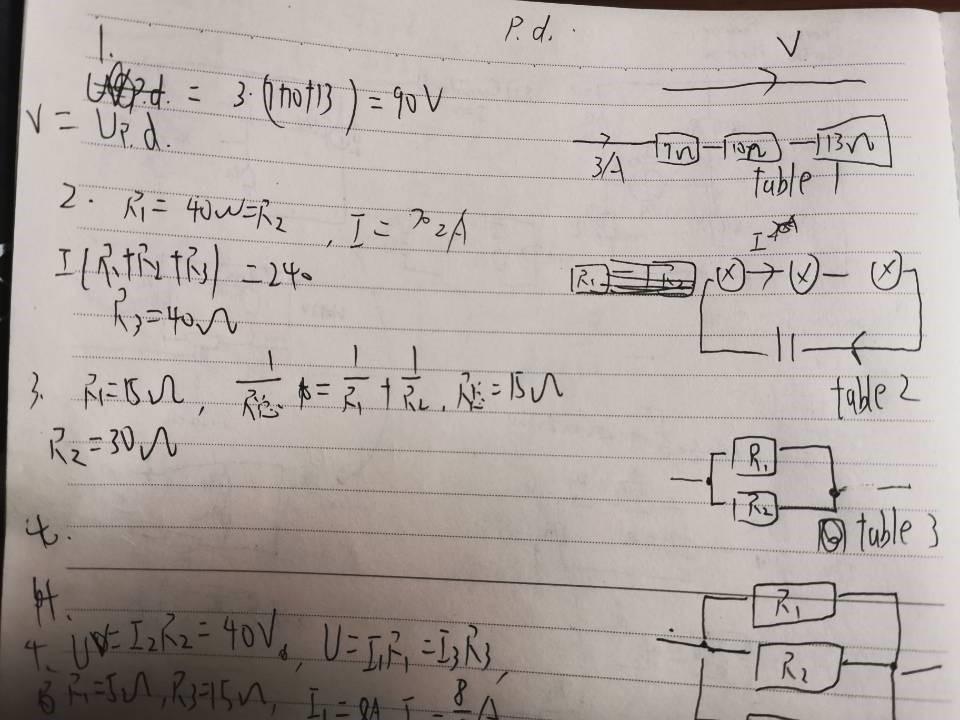 P.d.
1.
P.d. = 3·(7+10+13) = 90V
V = Up.d.
V
3A
7Ω
10Ω
13Ω
table 1
2. R₁ = 40Ω = R₂, I = 2A
I(R₁+R₂+R₃) = 240
R₃ = 40Ω
I
R₁
R₂
table 2
3. R₁ = 15Ω, 1/R总 = 1/R₁ + 1/R₂, R总 = 15Ω
R₂ = 30Ω
R₁
R₂
table 3
4.
4. U = I₂R₂ = 40V, U = I₁R₁ = I₃R₃,
R₁ = 5Ω, R₃ = 15Ω, I₁ = 8A
R₁
R₂